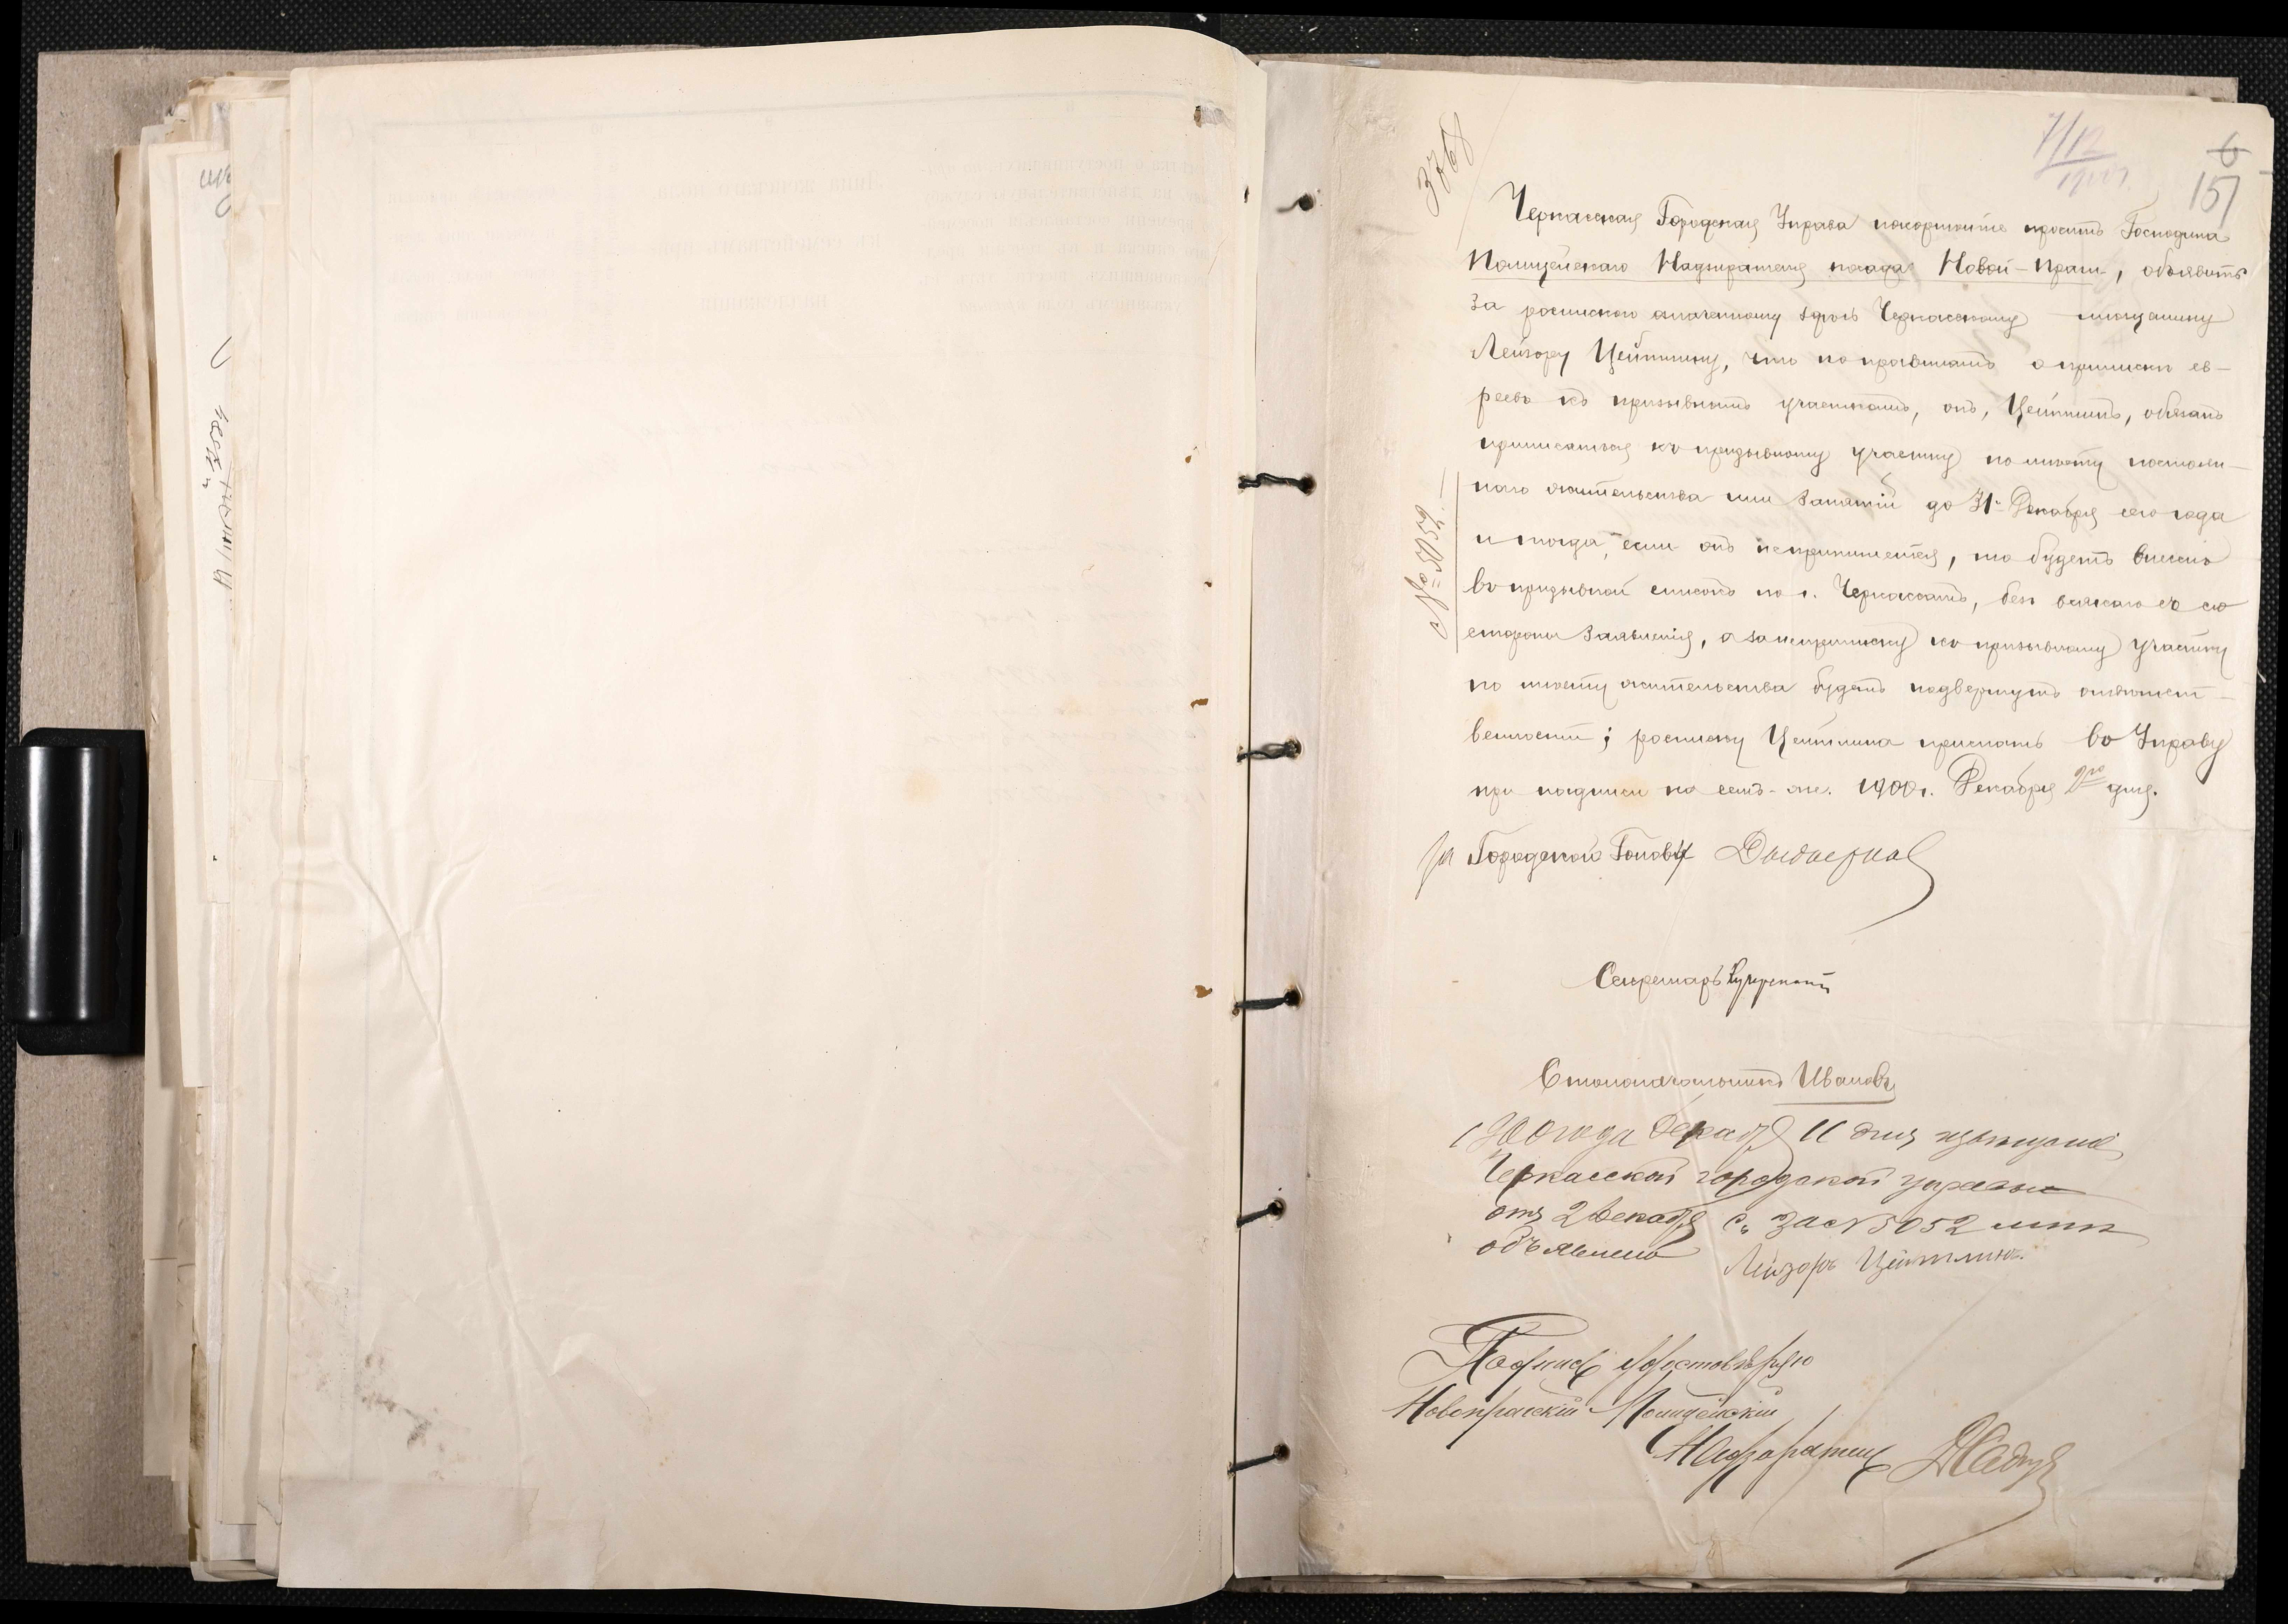 3768
7/12
6
151
Черкасская Городская Управа покорнѣйше проситъ Господина
Полицейскаго Надзирателя посада Новой-Праги, объявить
за роспискою значенному здѣсь Черкасскому мѣщанину
Лейзору Цейтлину, что по правиламъ о припискѣ ев-
реевъ къ призывнымъ участкамъ, онъ, Цейтлинъ, обязанъ
приписаться къ призывному участку по мѣсту постоян-
наго жительства или занятій до 31 Декабря сего года
и тогда, если онъ неприпишется, то будетъ внесенъ
въ призывной списокъ по г. Черкассамъ, безъ всякаго съ его
стороны заявленія, а за неприписку къ призывному участку
по мѣсту жительства будетъ подвергнутъ отвѣтст-
венности; росписку Цейтлина прислать въ Управу
при надписи на семъ-же. 1900 г. Декабря 2го дня.
№ 5052
За Городского Голову
Секретарь
Столоначальникъ Ивановъ
1900 года Декабря 11 дня
Черкасской городской управы
отъ 2 Декабря с. за № 5052 мнѣ
объявлено Лейзоръ Цейтлинъ.
Подпись удостовѣряю
Новопражскій Полицейскій
Надзиратель